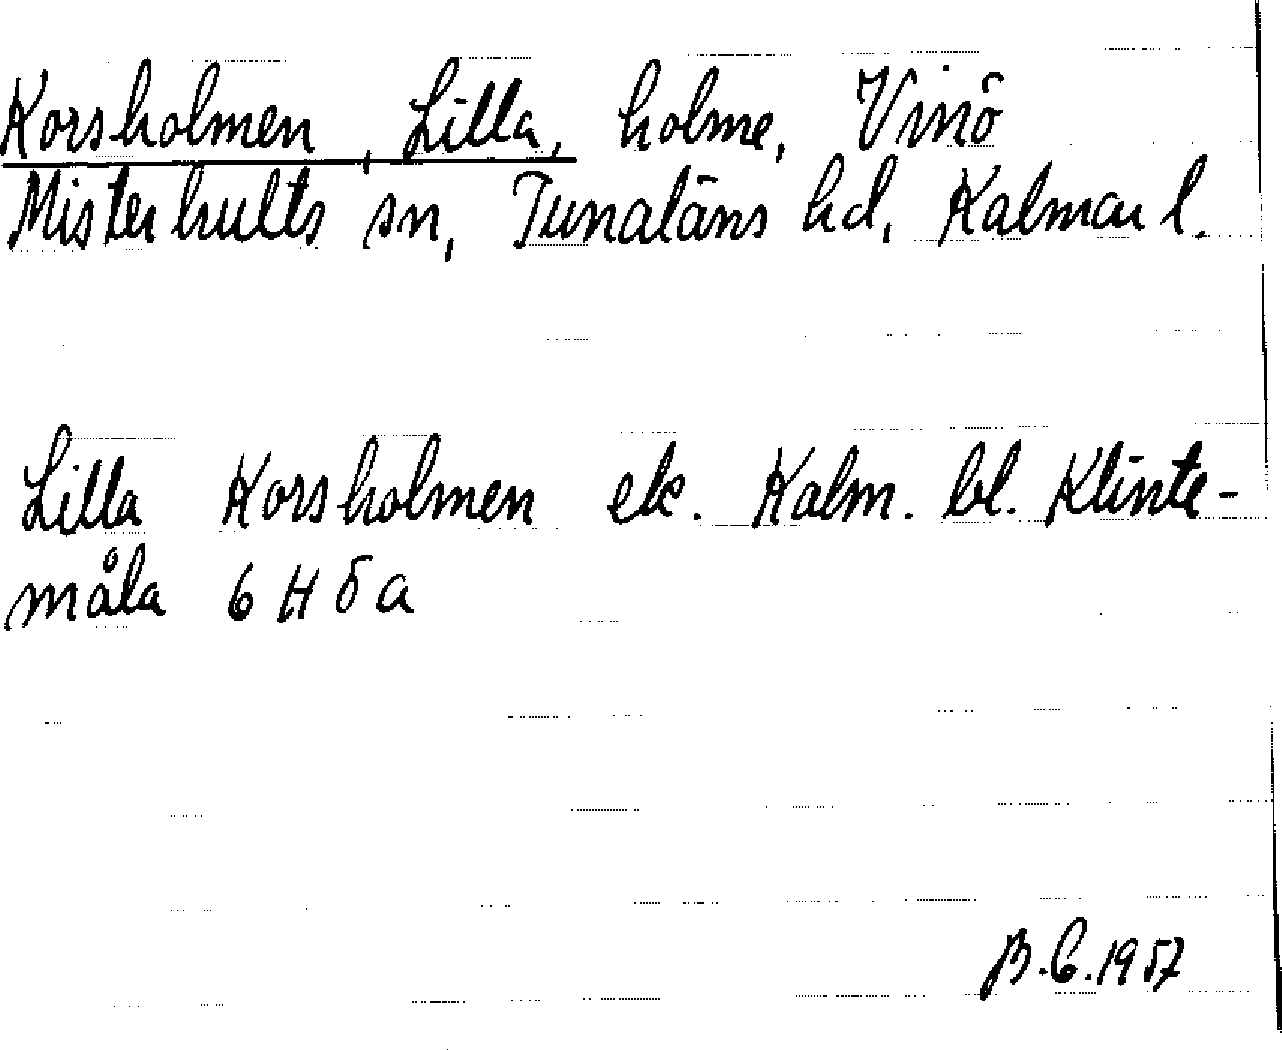 Korsholmen, Lilla, holme, Vinö
Misterhults sn, Tunaläns hd, Kalmar l.
Lilla Korsholmen ek. Kalm. bl. Klinte-
måla 6 H 5 a
B.C.1957